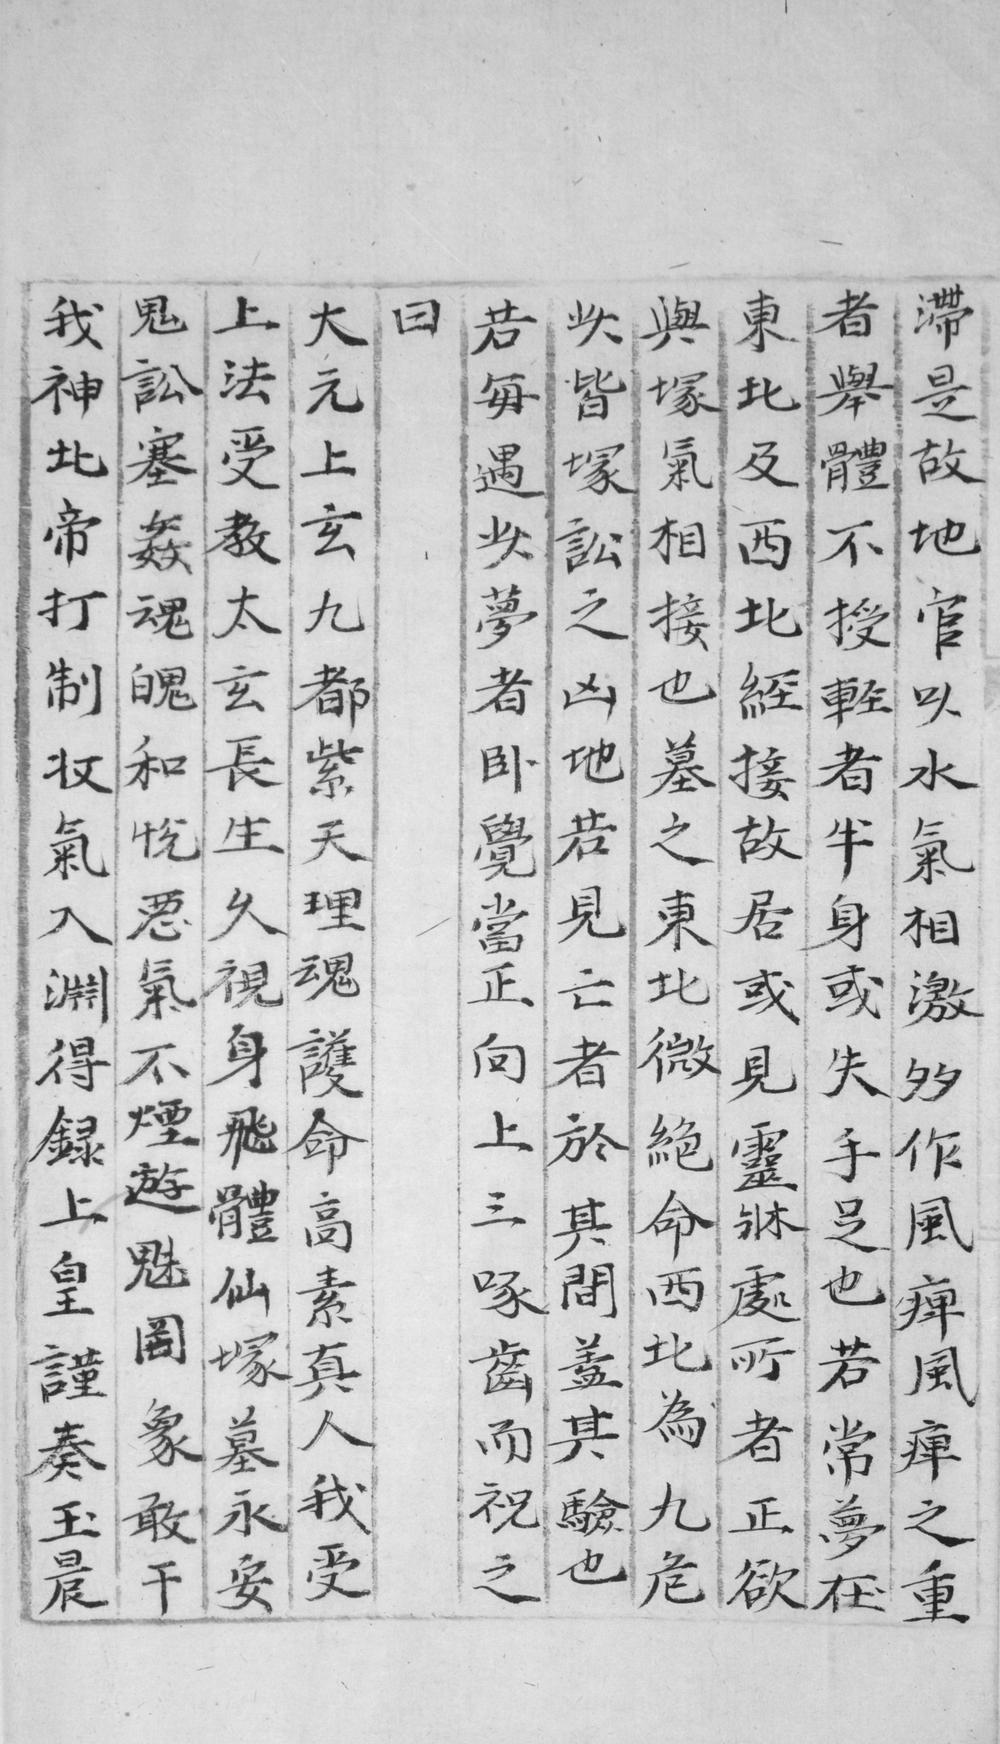 滯是故地官以水氣相激多作風痺風痺之重
者舉體不授輊者半身或失手足也若常夢在
東北及西北經接故居或見靈牀處所者正欲
與塚氣相接也墓之東北微絕命西北為九危
此皆塚訟之凶地若見亡者於其間蓋其驗也
若每遇此夢者卧覺當正向上三啄齒而祝之
曰
大元上玄九都紫天理魂護命高素真人我受
上法受教太玄長生久視身飛體仙塚墓永安
鬼訟塞姦魂魄和悅惡氣不煙遊魅罔象敢干
我神北帝打制收氣入淵得録上皇謹奏玉晨